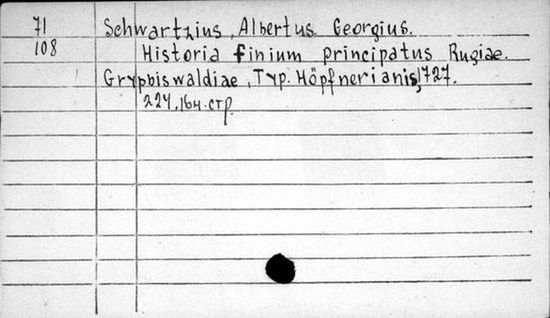 71 Schwartzius, Albertus Georgius.
108 Historia finium principatus Rugiae.
Grypbiswaldiae, Typ. Höpfnerianis, 1727.
224, 16н. стр.